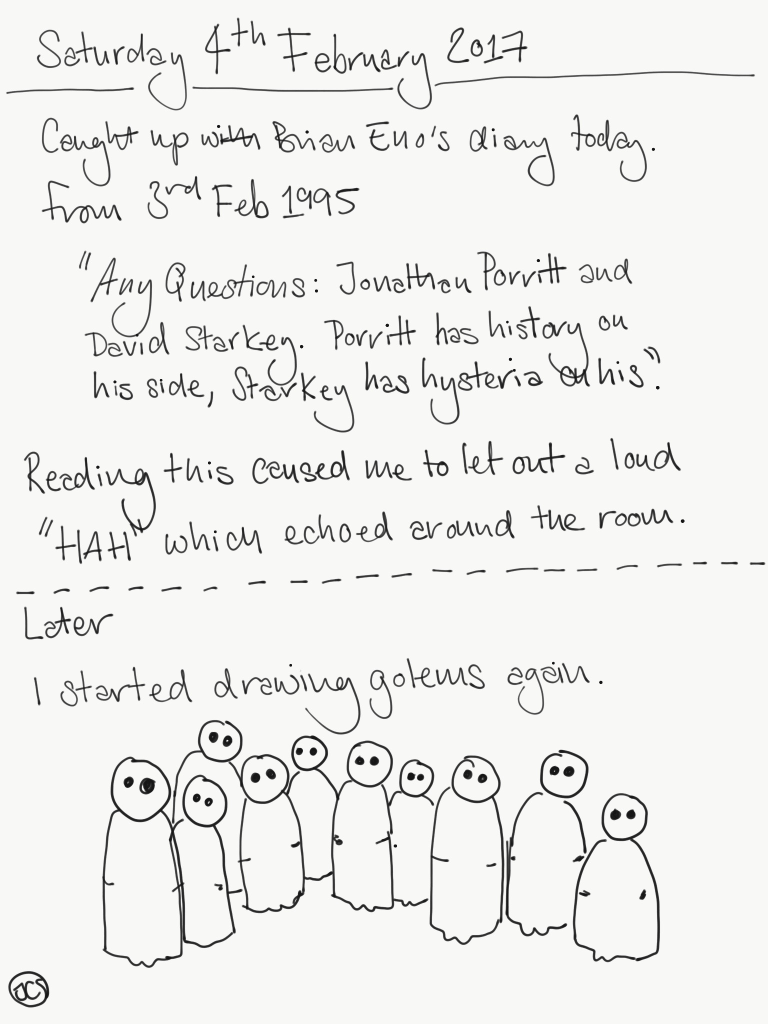 Saturday 4th February 2017
Caught up with Brian Eno's diary today.
From 3rd Feb 1995
"Any Questions: Jonathan Porritt and
David Starkey. Porritt has history on
his side, Starkey has hysteria on his".
Reading this caused me to let out a loud
"HAH" which echoed around the room.
Later
I started drawing golems again.
JCS